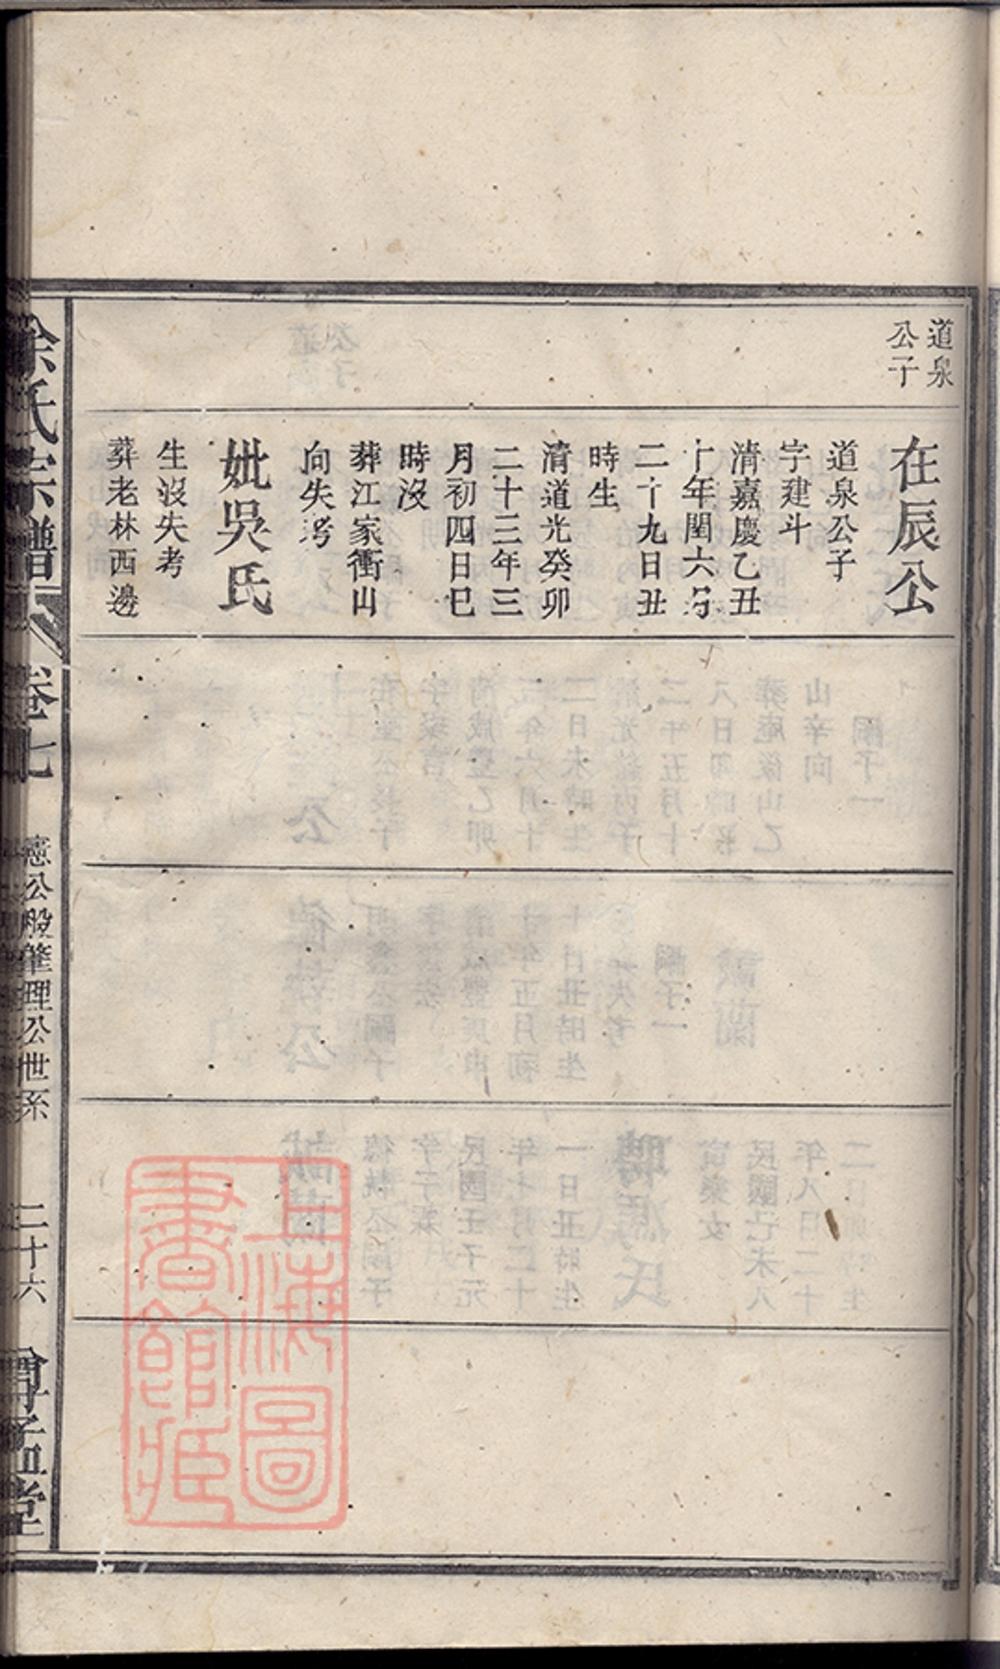 道泉
公子
在辰公
道泉公子
字建斗
清嘉慶乙丑
十年閏六月
二十九日丑
時生
清道光癸卯
二十三年三
月初四日巳
時沒
葬江家衝山
向失考
妣吳氏
生沒失考
葬老林西邊
余氏宗譜
卷七
憲公股肇理公世系
二十六
上海圖
書館藏